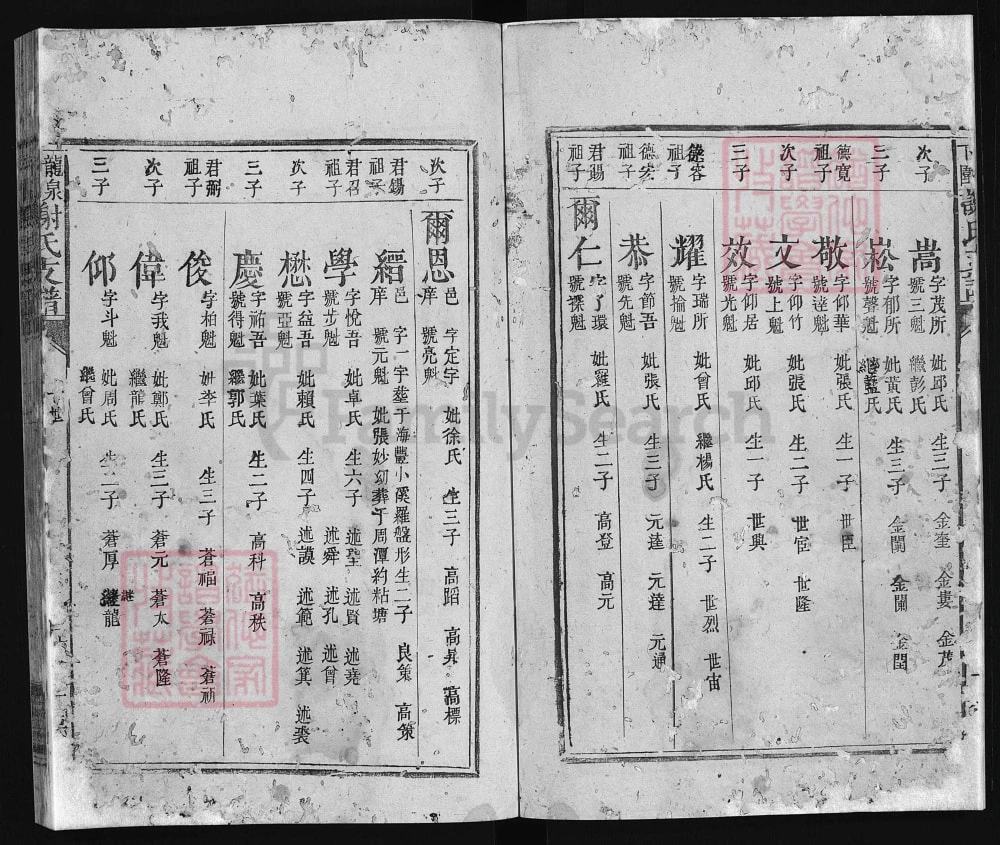 次子 嵩 字茂所 號三魁 妣邱氏 繼彭氏 生三子 金奎 金婁 金茂
三子 崧 字郁所 號馨魁 妣黃氏 繼藍氏 生三子 金闌 金闌 金閏
德寬祖子 敬 字仰華 號達魁 妣張氏 生一子 世臣
次子 文 字仰竹 號上魁 妣張氏 生二子 世宦 世隆
三子 效 字仰居 號光魁 妣邱氏 生一子 世興
德容祖子 耀 字瑞所 號掄魁 妣曾氏 繼楊氏 生二子 世烈 世宙
德宏祖子 恭 字節吾 號先魁 妣張氏 生三子 元逵 元達 元通
君賜祖子 爾仁 字了環 號深魁 妣羅氏 生二子 高登 高元
次子 爾恩 邑庠 字定宇 號亮魁 妣徐氏 生三子 高蹈 高昇 高標
君錫祖子 縉 邑庠 字一宇 號元魁 塟于海豐小溪羅盤形 妣張妙幼葬于周潭約粘塘 生二子 良策 高策
君召祖子 學 字悅吾 號步魁 妣卓氏 生六子 述聖 述賢 述堯 述舜 述孔 述曾
次子 懋 字益吾 號亞魁 妣賴氏 生四子 述謨 述範 述箕 述裘
三子 慶 字祐吾 號得魁 妣葉氏 繼郭氏 生二子 高科 高秩
君弼祖子 俊 字柏魁 妣李氏 生三子 蒼福 蒼祿 蒼禎
次子 偉 字我魁 妣鄭氏 繼龍氏 生三子 蒼元 蒼太 蒼隆
三子 仰 字斗魁 妣周氏 繼曾氏 生二子 蒼厚 繼龍
龍泉謝氏支譜
FamilySearch